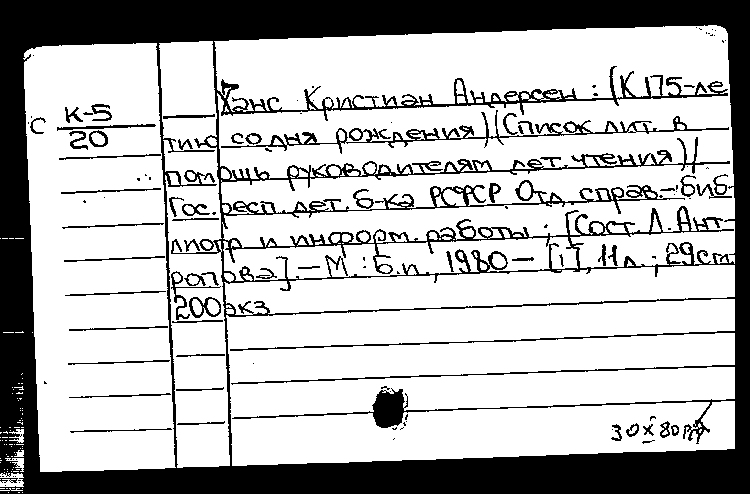 Ханс Кристиан Андерсен : (К 175-ле
С К-5
20
тию со дня рождения) (Список лит. в
помощь руководителям дет. чтения) /
Гос. респ. дет. б-ка РСФСР. Отд. справ.-биб-
лиогр и информ. работы ; [Сост. Л. Ант-
ропова]. – М. : Б.и., 1980 – [1], 11 л. ; 29 см.
200 экз
30 X 80